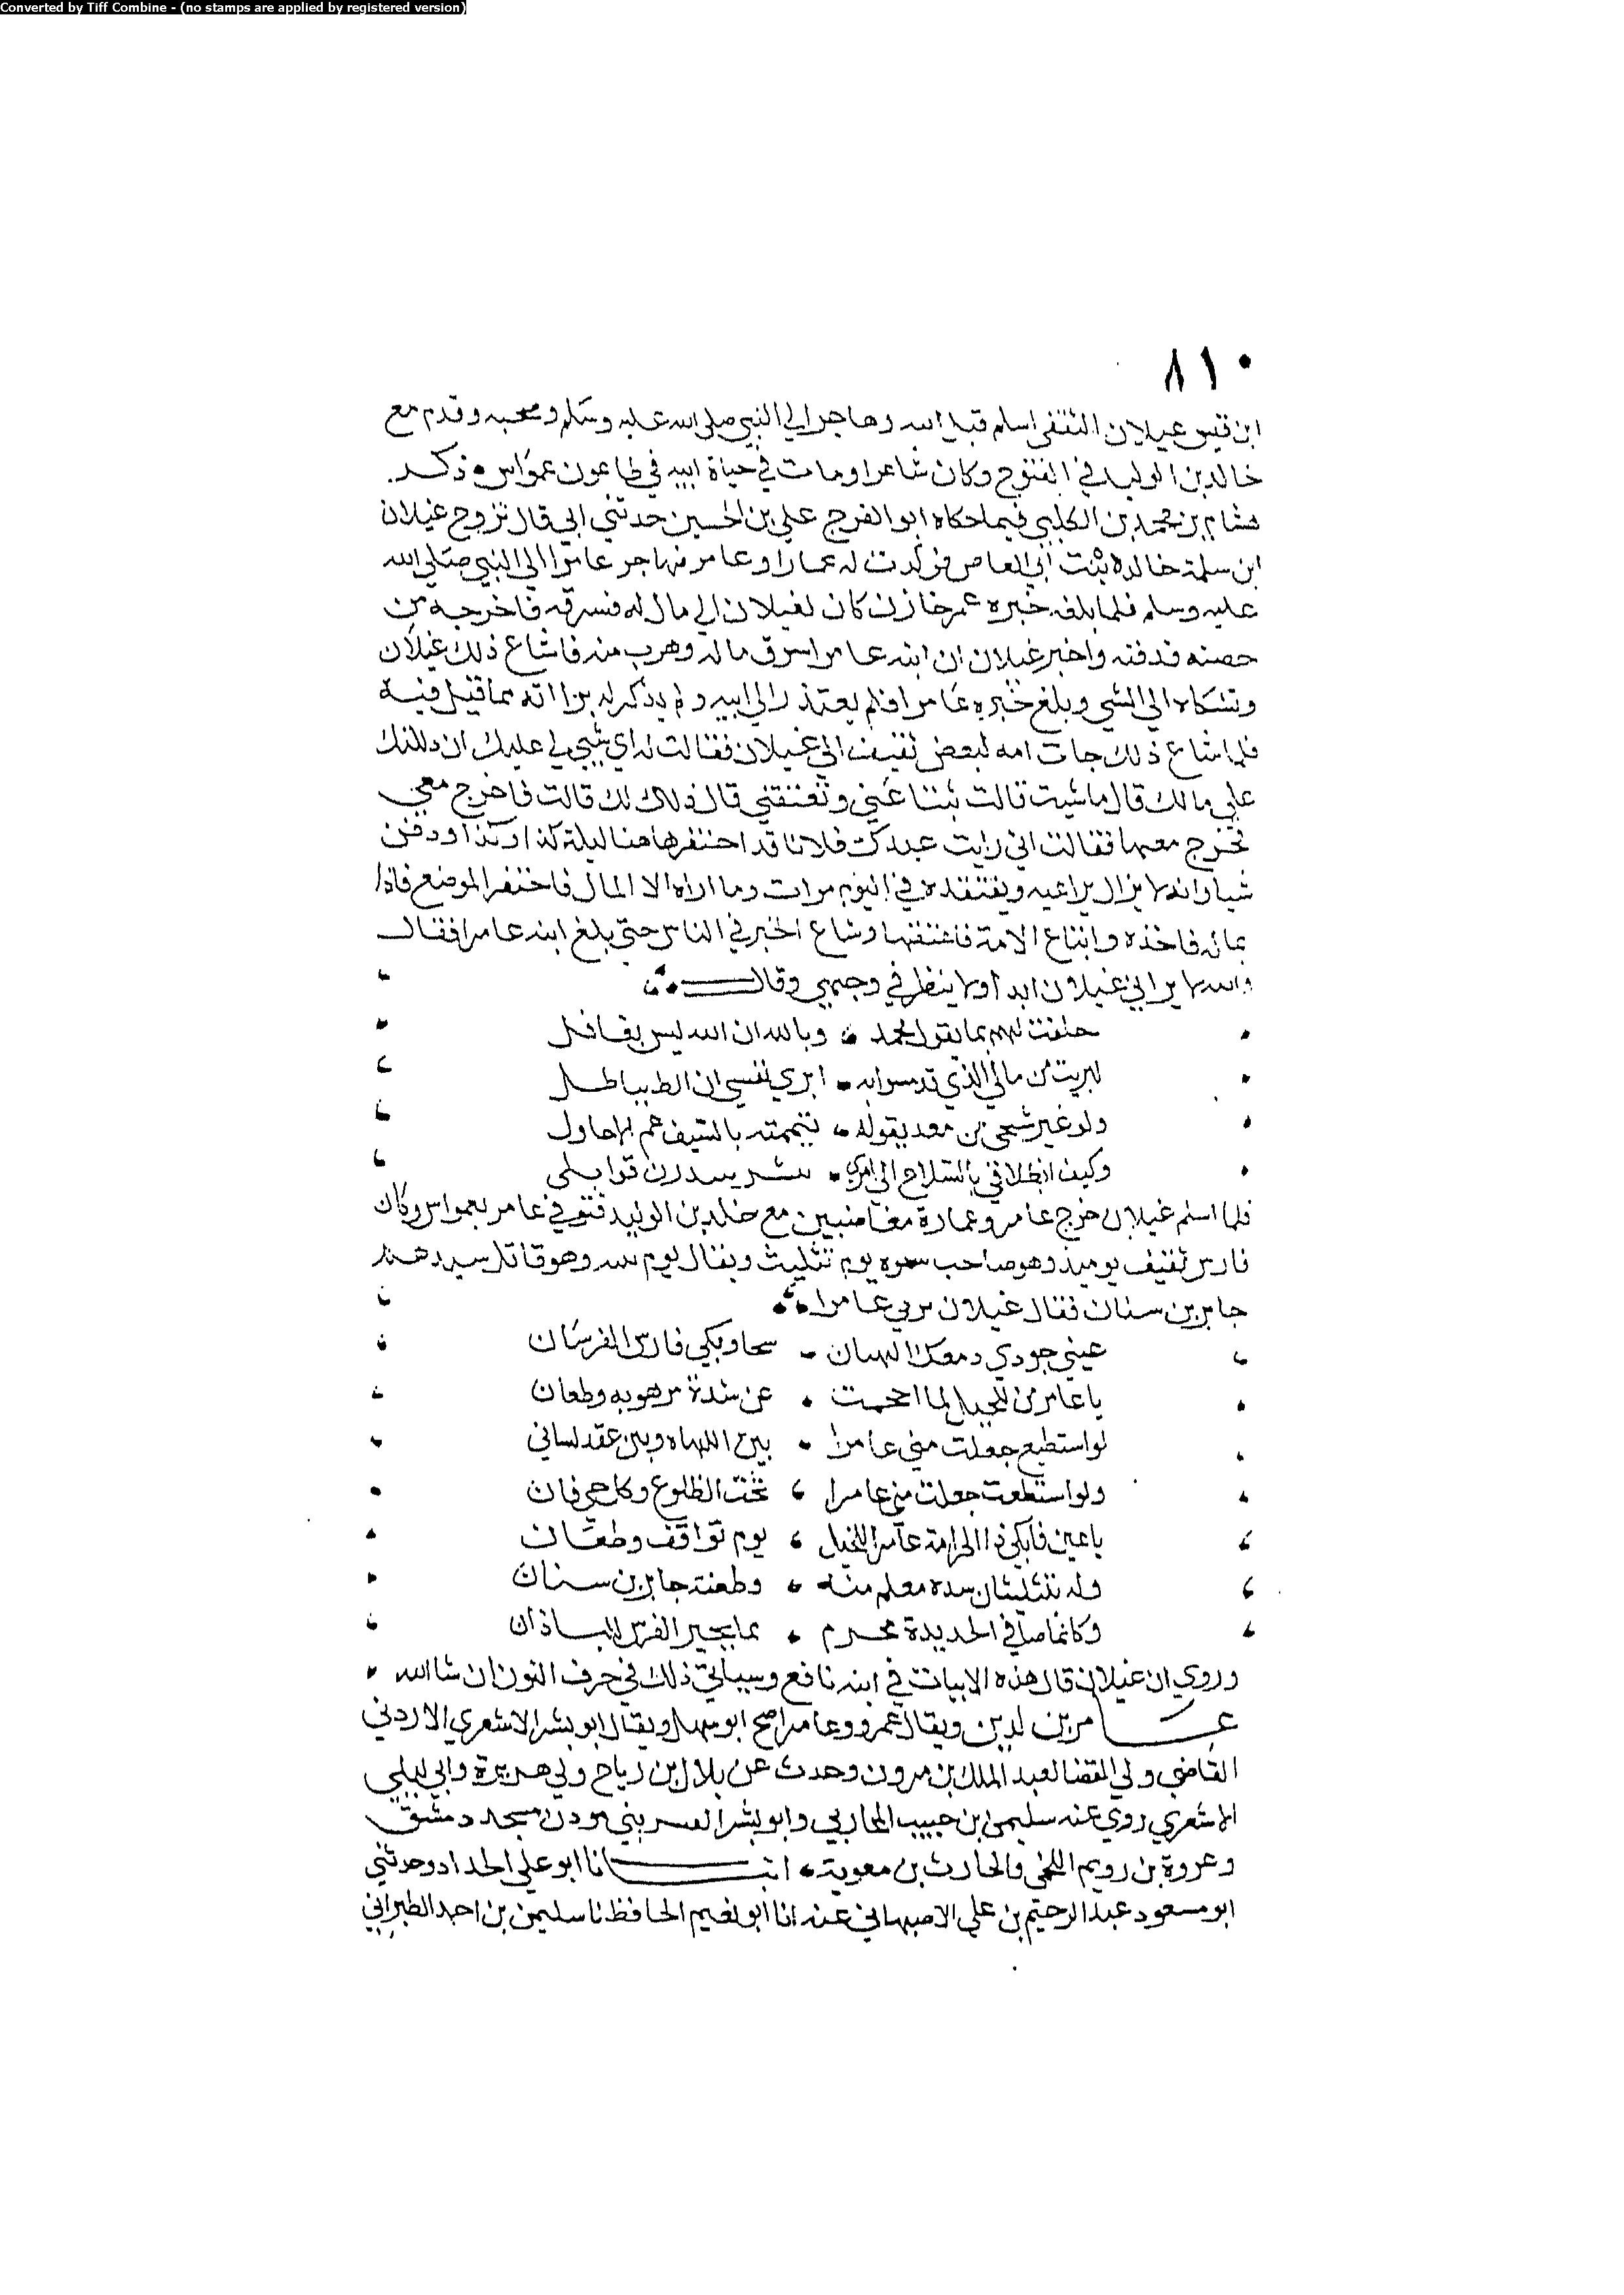 Converted by Tiff Combine - (no stamps are applied by registered version)
٨١٠
ابن قيس عيلان الثقفى اسلم قبل ابيه وهاجر الي النبي صلي الله عليه وسلم وصحبه وقدم مع
خالد بن الوليد في الفتوح وكان شاعرا ومات في حياة ابيه في طاعون عمواس ذكر
هشام بن محمد بن الكلبي فيما حكاه ابو الفرج علي بن الحسين حدثني ابي قال تزوج غيلان
ابن سلمة خالدة بنت ابي العاص فولدت له عمارا وعامر فهاجر عامرا الي النبي صلي الله
عليه وسلم فلما بلغه خبره عمر خازن كان لغيلان الي مال له فسرقه فاخرجه من
حصنه فدفنه واخبر غيلان ان ابنه عامرا سرق ماله وهرب منه فاشاع ذلك غيلان
وشكاه الي الشي وبلغ خبره عامرا فلم يعتذر الي ابيه ولم يذكر له براته مما قيل فيه
فلما شاع ذلك جات امه لبعض ثقيف الي غيلان فقالت له اي شي لي عليك ان دللتك
علي مالك قال ما شيت قالت تبتاعني وتعتقني قال ذلك لك قالت فاخرج معي
فخرج معها فقالت اني رايت عبدك فلانا قد احتفر هاهنا ليلة كذا وكذا ودفن
شيا وانه لا يزال يراعيه ويفتقده في اليوم مرات وما اراه الا المال فاحتفر الموضع فاذا
بماله فاخذه وابتاع الامة فاعتقها وشاع الخبر في الناس حتي بلغ ابنه عامرا فقال
والله لا يراني غيلان ابدا ولا ينظر في وجهي وقال
حلفت لهم بما يقول محمد وبالله ان الله ليس بغافل
لبريت من مالي الذي ابري نفسي ان الط بباطل
ولو غير شيخي من معد يقوله تيممته بالسيف
وكيف انطلاقي بالسلاح الي امرئ
فلما اسلم غيلان خرج عامر وعمارة مغاضبين مع خلد بن الوليد فتوفي عامر بعمواس وكان
فارس ثقيف يوميذ وهو صاحب يوم تثليث ويقال يوم وهو قاتل سيدهم
جابر بن سنان فقال غيلان يرثي عامرا
عيني جودي دمعك الهتان سحا وبكي فارس الفرسان
يا عامر من للخيل لما احجمت عن شدة مرهوبه وطعان
لو استطيع جعلت مني عامرا بين اللهاه وبين عقد لساني
ولو استطعت جعلت مني عامرا تحت الظلوع وكل حي فان
يا عين فابكي ذا الحزامة عامرا للخيل يوم تواقف وطعان
وله بتثليثان معلم منه وطعنة جابر بن سنان
وكانما صافي الحديدة مخدم مما يجير الفرس للباذان
وروي ان غيلان قال هذه الابيات في ابنه نافع وسياتي ذلك في حرف النون ان شا الله
عامر بن لدين ويقال عمرو وعامر اصح ابو سهل ويقال ابو بشر الاشعري الاردني
القاضي ولي القضا لعبد الملك بن مرون وحدث عن بلال بن رباح وابي هريرة وابي ليلي
الاشعري روي عنه سليمن بن حبيب المحاربي وابو بشر موذن مسجد دمشق
وعروة بن رويم اللخمي والحارث بن معوية انبانا ابو علي الحداد وحدثني
ابو مسعود عبد الرحيم بن علي الاصبهاني عنه انا ابو نعيم الحافظ نا سليمن بن احمد الطبراني